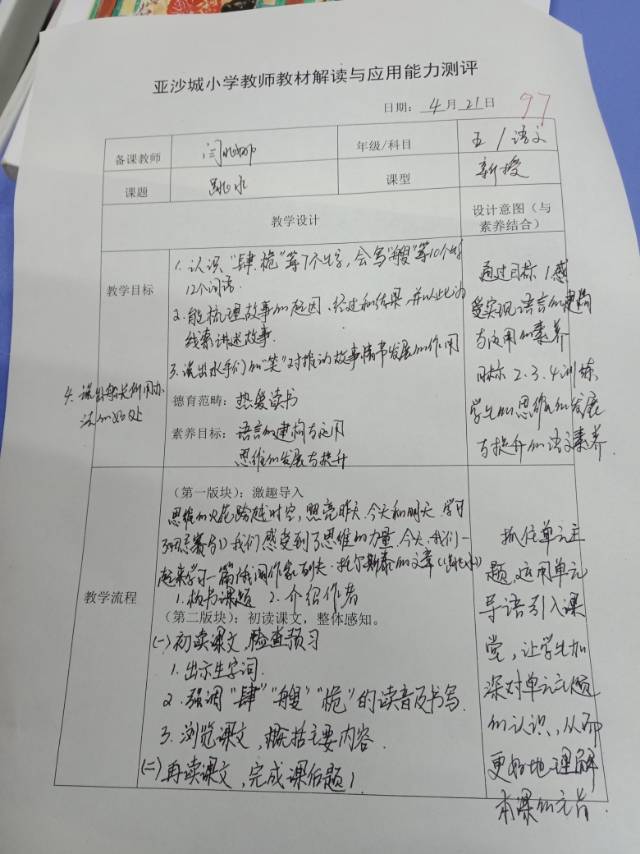 亚沙城小学教师教材解读与应用能力测评
日期：4月21日
97
备课教师 闫 年级/科目 五/语文
课题 跳水 课型 新授
教学设计
设计意图（与
素养结合）
教学目标
1.认识"肆、桅"等7个生字，会写"艘"等10个字
12个词语.
2.能梳理故事的起因、经过和结果，并以此为
线索讲述故事.
3.说出水手们的"笑"对推动故事情节发展的作用
4.说出船长所用办
法的好处
德育范畴：热爱读书
素养目标：语言的建构与运用
思维的发展与提升
通过目标1感
受实现语言的建构
与运用的素养
目标2.3.4训练
学生的思维的发展
与提升的语文素养.
教学流程
（第一版块）：激趣导入
思维的火花跨越时空，照亮昨天、今天和明天.学习
了《田忌赛马》我们感受到了思维的力量.今天.我们一
起来学习一篇俄国作家列夫·托尔斯泰的文章《跳水》
1.板书课题 2.介绍作者
（第二版块）：初读课文，整体感知。
(一)初读课文，检查预习
1.出示生字词.
2.强调"肆""艘""桅"的读音及书写.
3.浏览课文，概括主要内容.
(二)再读课文，完成课后题1
抓住单元主
题，运用单元
导语引入课
堂，让学生加
深对单元主题
的认识，从而
更好地理解
本课的主旨.